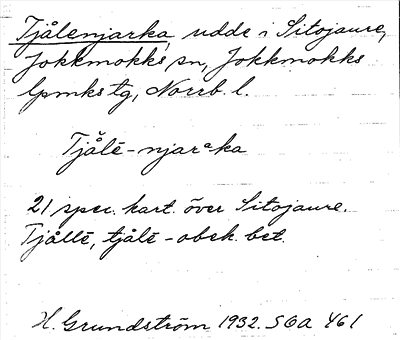 Tjålenjarka, udde i Sitojaure,
Jokkmokks sn, Jokkmokks
lpmks tg, Norrb. l.
Tjǎlē-njarᵃka
21 spec. kart. över Sitojaure.
Tjållē, tjålē - obek. bet.
H. Grundström 1932. SOA 461